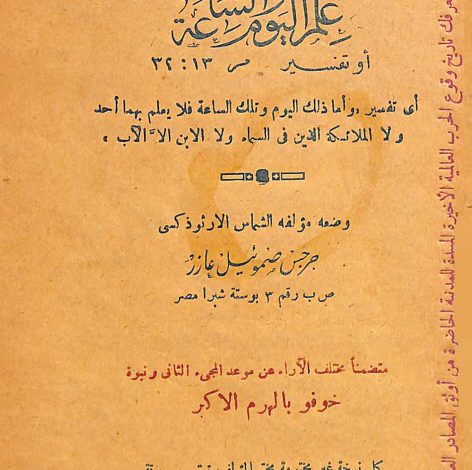 علم اليوم والساعة
أو تفسير مر ١٣ : ٣٢
أى تفسير «وأما ذلك اليوم وتلك الساعة فلا يعلم بهما أحد
ولا الملائكة الذين فى السماء ولا الابن الا الآب»
وضعه مؤلفه الشماس الارثوذكسى
جرجس صموئيل عازر
ص ب رقم ٣ بوستة شبرا مصر
متضمناً مختلف الآراء عن موعد المجىء الثانى ونبوة
خوفو بالهرم الاكبر
كل نسخة غير مختومة بختم المؤلف
يعرفك تاريخ وقوع الحرب العالمية الأخيرة المسددة للمدنية الحاضرة من أوثق المصادر